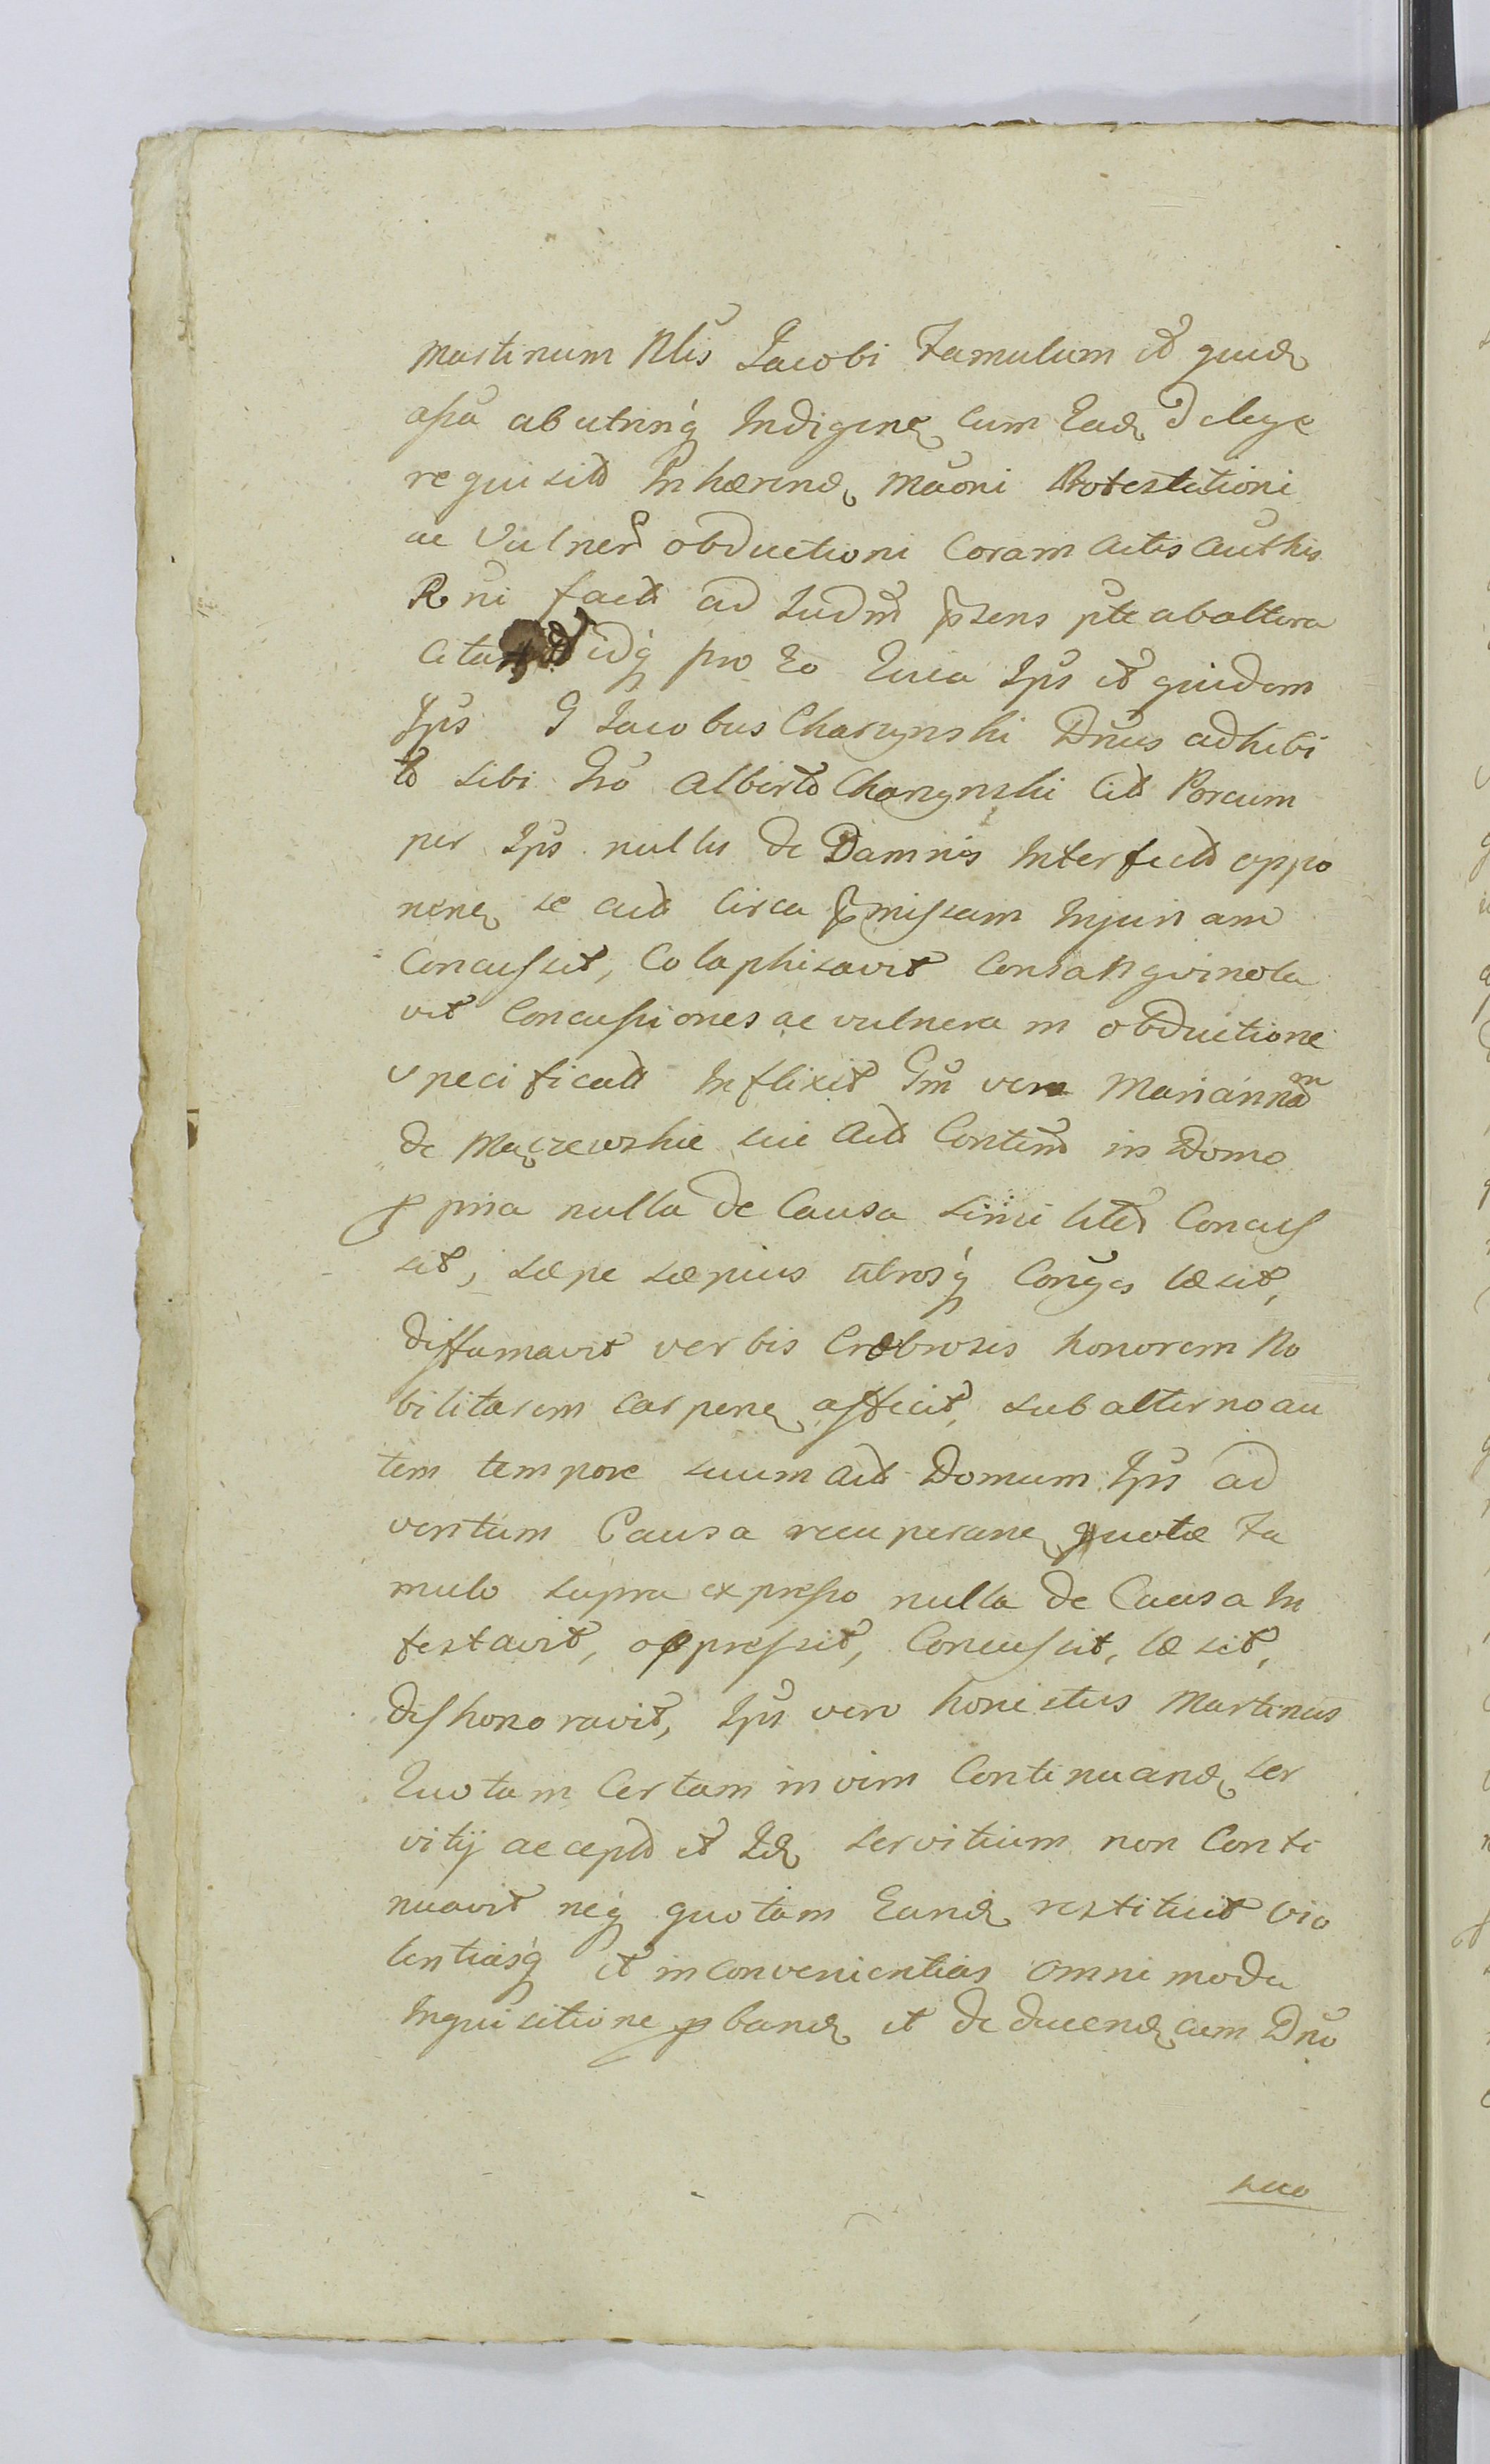 Martinum Nlis Jacobi Famulum et quid
assa ab utrinq Indigen cum Ead de lege
requisit Inhærend Maoni Protestationi
ac Vulner obductioni Coram Actis Authis
R ni fact ad Iudm psens pte ab altera
Cita idq pro Eo Quia Ips et quidem
Ips G Jacobus Charzynski Dnus adhibi
to sibi Gro Alberto Charzynski Cit Porcum
per Ips nullis de Damnis Interfect oppo
nen se act Circa pmissam Injuriam
Concussit, Colaphisavit Consangvinola
vit Concussiones ac vulnera in obductione
specificat Inflixit Gm vero Mariannam
de sui Act Contm in Domo
ppria nulla de Causa similiter Concus
sit, sæpe sæpius utrosq Conges læsit,
diffamavit verbis Crebrosis honorem No
bilitarem carpen affecit, sub alterno au
tem tempore suum act Domum Ips ad
ventum Causa recuperan quotæ Fa
mulo supra expresso nulla de Causa In
festavit, oppressit, Concussit, læsit,
dishonoravit, Ips vero honestus Martinus
Quotam Certam in vim Continuand ser
vitij accept et Id servitium non Conti
nuavit neq quotam Eand restituit vio
lentiasq et inconvenientias omnimoda
Inquisitione pband et deducend cum Dno
suo